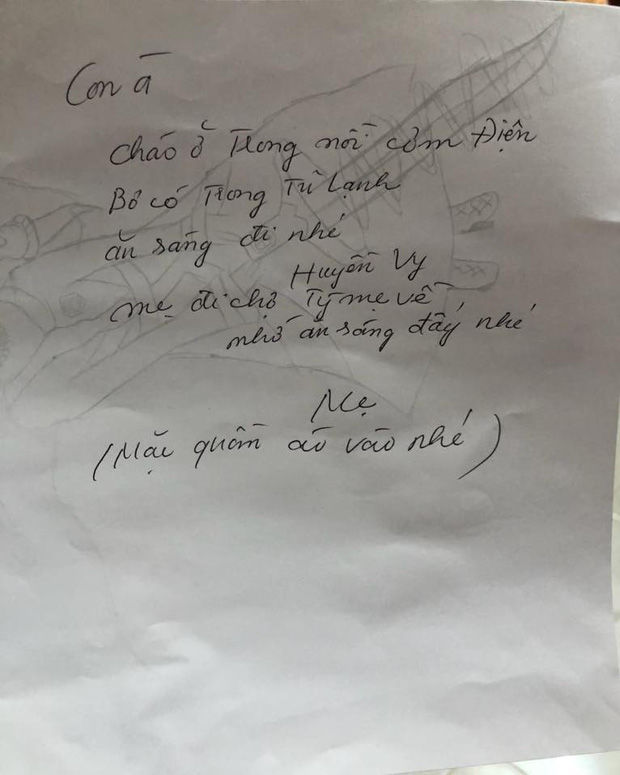 Con à
cháo ở trong nồi cơm Điện
Bơ có Trong Tủ Lạnh
ăn sáng đi nhé
Huyền Vy
mẹ đi chợ Tý mẹ về
nhớ ăn sáng đấy nhé
Mẹ
(Mặc quần áo vào nhé)